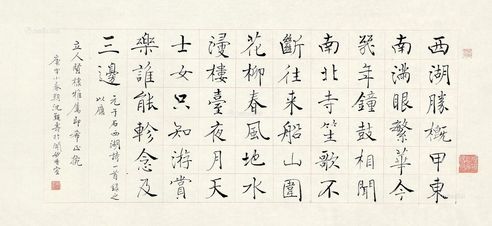 西湖勝概甲東
南滿眼繁華今
幾年鐘鼓相聞
南北寺笙歌不
斷往來船山圍
花柳春風地水
浸樓臺夜月天
士女只知游賞
樂誰能軫念及
三邊
元于石西湖詩一首錄之
以應
立人賢棣雅屬即希正腕
庚申小春朔沈覲壽於閩